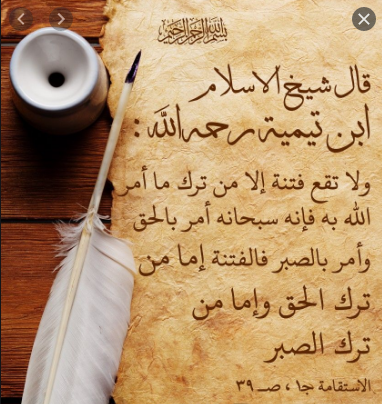 بسم الله الرحمن الرحيم
قال شيخ الاسلام
ابن تيمية رحمه الله :
ولا تقع فتنة إلا من ترك ما أمر
الله به فإنه سبحانه أمر بالحق
وأمر بالصبر فالفتنة إما من
ترك الحق وإما من
ترك الصبر
الاستقامة ج١ ، صـ ٣٩